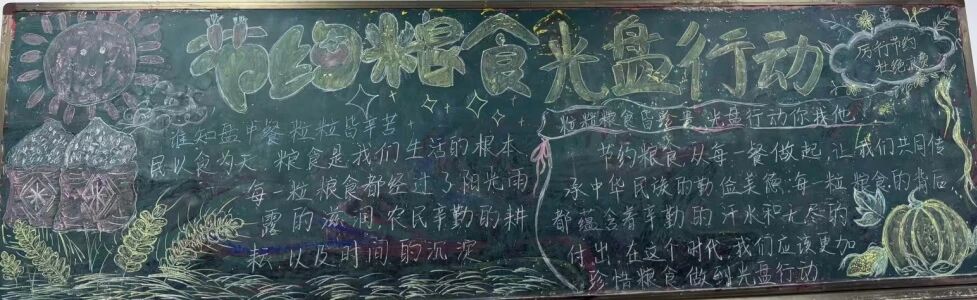 节约粮食光盘行动
厉行节约
杜绝浪费
谁知盘中餐粒粒皆辛苦
民以食为天 粮食是我们生活的根本
每一粒粮食都经过了阳光雨
露的滋润农民辛勤的耕
耘以及时间的沉淀
粒粒粮食 光盘行动你我他!
节约粮食从每一餐做起,让我们共同传
承中华民族的勤俭美德,每一粒粮食的背后
都蕴含着辛勤的汗水和无尽的
付出,在这个时代,我们应该更加
珍惜粮食做到光盘行动